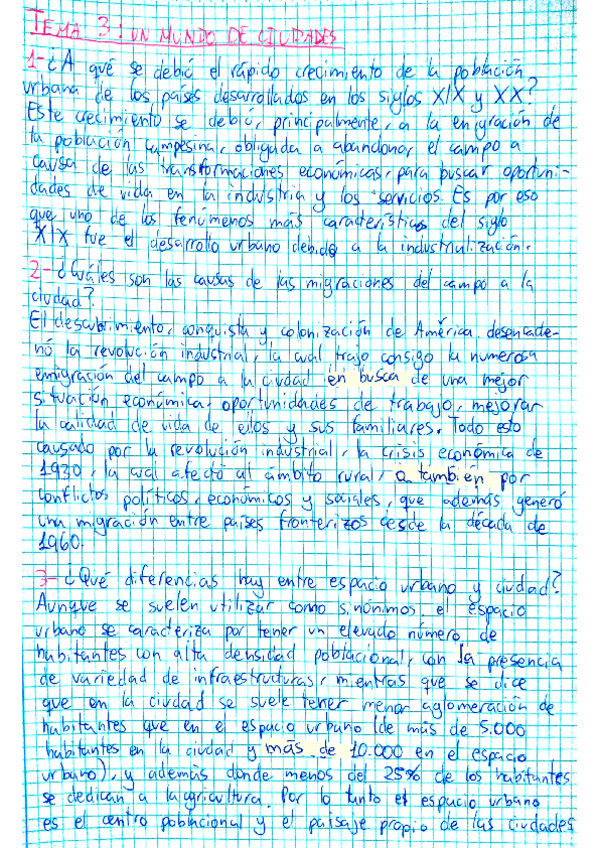 TEMA 3: UN MUNDO DE CIUDADES
1-¿A qué se debió el rápido crecimiento de la población
urbana de los países desarrollados en los siglos XIX y XX?
Este crecimiento se debió, principalmente, a la emigración de
la población campesina, obligada a abandonar el campo a
causa de las transformaciones económicas, para buscar oportuni-
dades de vida en la industria y los servicios. Es por eso
que uno de los fenómenos más característicos del siglo
XIX fue el desarrollo urbano debido a la industrialización.
2-¿Cuáles son las causas de las migraciones del campo a la
ciudad?
El descubrimiento, conquista y colonización de América desencade-
nó la revolución industrial, la cual trajo consigo la numerosa
emigración del campo a la ciudad en busca de una mejor
situación económica, oportunidades de trabajo, mejorar
la calidad de vida de ellos y sus familiares. Todo esto
causado por la revolución industrial, la crisis económica de
1930, la cual afectó al ámbito rural, o también por
conflictos políticos, económicos y sociales, que además generó
una migración entre países fronterizos desde la década de
1960.
3-¿Qué diferencias hay entre espacio urbano y ciudad?
Aunque se suelen utilizar como sinónimos, el espacio
urbano se caracteriza por tener un elevado número de
habitantes con alta densidad poblacional, con la presencia
de variedad de infraestructuras, mientras que se dice
que en la ciudad se suele tener menor aglomeración de
habitantes que en el espacio urbano (de más de 5.000
habitantes en la ciudad y más de 10.000 en el espacio
urbano), y además donde menos del 25% de los habitantes
se dedican a la agricultura. Por lo tanto el espacio urbano
es el centro poblacional y el paisaje propio de las ciudades